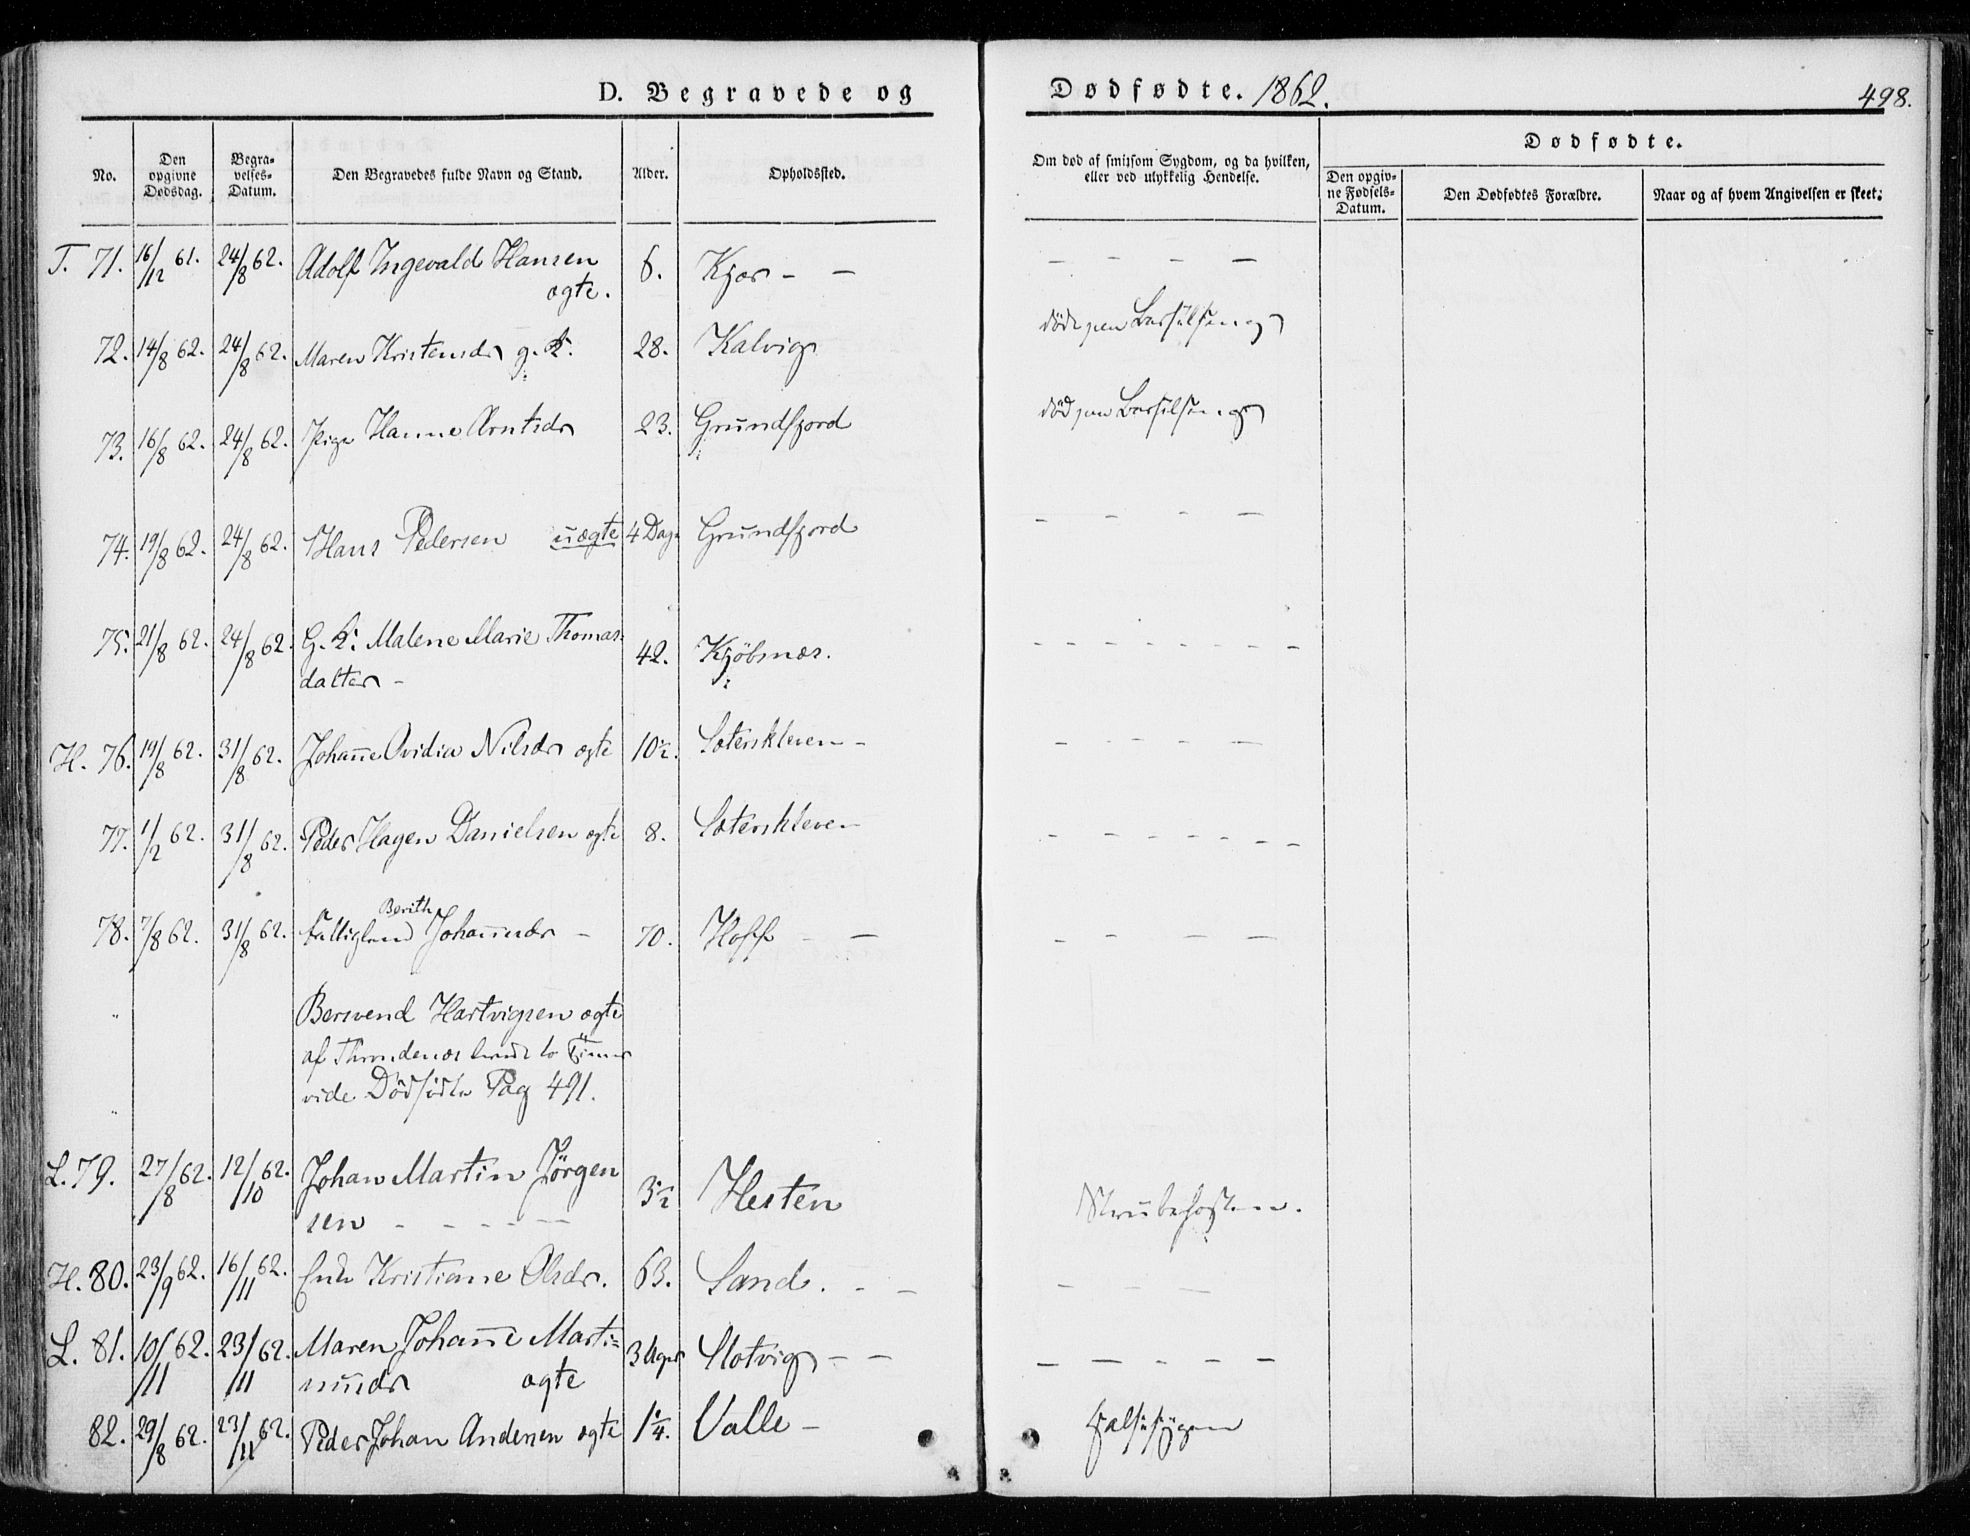 D. Begravede og Dødfødte. 1862. 498.
No. Den opgivne Dødsdag. Begravelses-Datum. Den Begravedes fulde Navn og Stand. Alder. Opholdssted. Om død af smitsom Sygdom, og da hvilken, eller ved ulykkelig Hendelse. Dødfødte.
Den opgivne Fødsels-Datum. Den Dødfødtes Forældre. Naar og af hvem Angivelsen er skeet.
T. 71. 16/12 61. 24/8 62. Adolf Ingevald Hansen 6. Kjær - - - - - -
ægte.
72. 14/8 62. 24/8 62. Maren Kristensdr g. K. 28. Kalvig døde paa Barselseng
73. 16/8 62. 24/8 62. Pige Hanne Arntsdr 23. Grundfjord død paa Barselseng
74. 19/8 62. 24/8 62. Hans Pedersen uægte 4 Dage Grundfjord - - - -
75. 21/8 62. 24/8 62. G. K. Malene Marie Thomas- 42. Kjöbnæs. - - - - - - -
datter -
H. 76. 19/8 62. 31/8 62. Johanne Ovidia Nilsdr ægte 10½. Sæterskleven - - - - - -
77. 1/2 62. 31/8 62. Peder Hagen Danielsen ægte 8. Sæterskleven - - - - - - -
78. 7/8 62. 31/8 62. Fattiglem Berith Johannesdr - 70. Hoff - - - - - -
Berwend Hartvigsen ægte
af Throndenæs levede to Timer
vide Dödfödte Pag 491.
L. 79. 27/8 62. 12/10 62. Johan Martin Jörgen 3½ Hesten Strubehosten.
sen - - - - -
H. 80. 23/9 62. 16/11 62. Enke Kristiane Olsdr. 63. Sand. - - - - -
L. 81. 10/11 62. 23/11 62. Maren Johanne Marti= 3 Uger Slotvig - - - - - - -
nusdr ægte
82. 29/8 62. 23/11 62. Peder Johan Andersen ægte 1¼. Valle - Halssygen